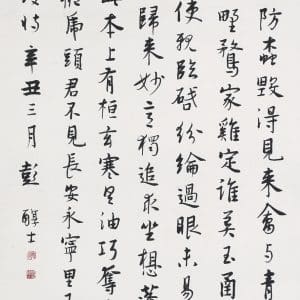 防蠹毁得見来禽与青
野鶩家雞定誰美玉函
使親臨啟紛綸過眼未易
歸来妙意獨追求坐想蓬
本上有桓玄寒具油巧奪
虎頭君不見長安永寧里
辛丑三月彭醇士